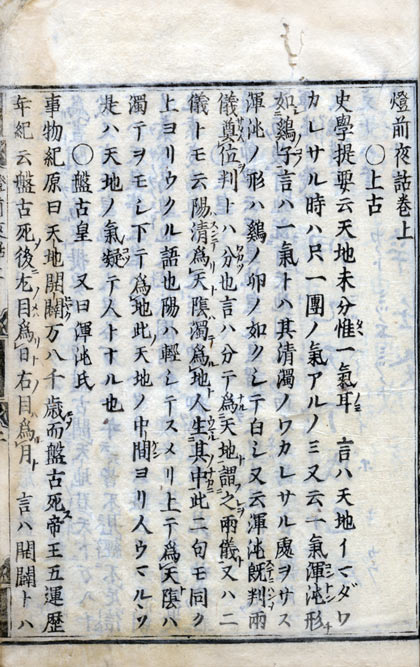 燈前夜話巻上
○上古
史學提要云天地未分惟一氣耳 言ハ天地イマダワ
カレサル時ハ只一團ノ氣アルノミ又云一氣渾沌形
如鷄子言ハ一氣トハ其清濁ノワカレサル處ヲサス
渾沌ノ形ハ鷄ノ卵ノ如クシテ白シ又云渾沌既判兩
儀奠位判トハ分也言ハ分テ爲天地謂之兩儀又ハ二
儀トモ云陽清爲天陰濁爲地人生其中此二句モ同ク
上ヨリウクル語也陽ハ輕シテスメリ上テ爲天陰ハ
濁テヲモシ下テ爲地此天地ノ中間ヨリ人ウマルヽ
是ハ天地ノ氣凝テ人トナル也
○盤古皇 又曰渾沌氏
事物紀原曰天地開闢万八千歳而盤古死帝王五運歴
年紀云盤古死後左目爲日右目爲月 言ハ開闢トハ